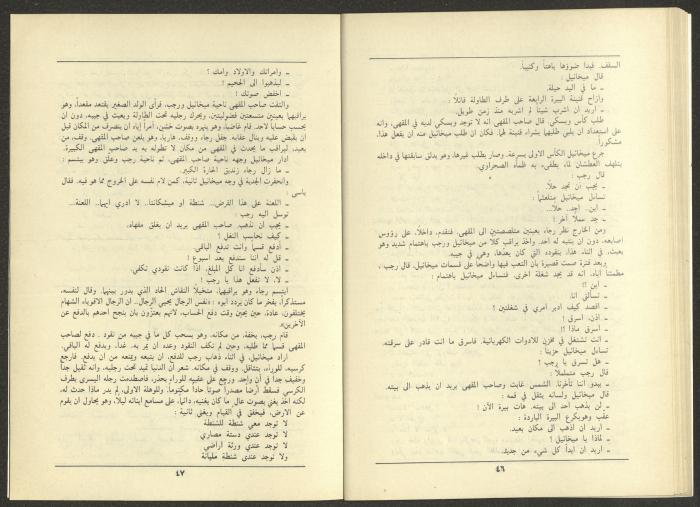 السقف فبدا ضوؤها باهتاً وكئيباً.
قال ميخائيل :
ـ ما في اليد حيلة.
وازاح قنينة البيرة الرابعة على طرف الطاولة قائلاً :
ـ أريد ان اشرب شيئاً لم اشربه منذ زمن طويل.
طلب كأس ويسكي. قال صاحب المقهى انه لا توجد ويسكي لديه في المقهى، وانه
على استعداد ان يلبي طلبها بشراء قنينة لهما. فكان ان طلب ميخائيل منه ان يفعل هذا،
مشكوراً.
جرع ميخائيل الكأس الاولى بسرعة. وصار يطلب غيرها، وهو يدلق سابقتها في داخله
بتلهف العطشان لماء يطفىء به ظمأه الصحراوي.
قال رجب :
ـ يجب ان نجد حلا.
تساءل ميخائيل متلعثماً :
ـ اين.. اجد.. حلا..
ـ جد عملاً آخر !
ومن الخارج نظر رجاء بعينين متلصصتين الى المقهى، فتقدم، داخلا، على رؤوس
اصابعه، دون ان ينتبه له احد. واخذ يراقب كلا من ميخائيل ورجب باهتمام شديد وهو
يعبث، في اثناء هذا، بنقوده التي كان يعدها، وهي في جيبه.
وبعد فترة صمت قصيرة بان التعب فيها واضحاً على قسمات ميخائيل، قال رجب،
مطمئناً اياه، انه قد يجد شغلة اخرى. فتساءل ميخائيل باهتمام :
ـ اين ؟!
ـ تسألني انا.
ـ اقصد كيف ادبر امري في شغلتين !
ـ اذن، اسرق !
ـ اسرق ماذا ؟!
ـ انت تشتغل في مخزن للادوات الكهربائية. فاسرق ما انت قادر على سرقته.
تساءل ميخائيل حزيناً :
ـ هل تسرق يا رجب ؟
قال رجب متململاً :
ـ يبدو أننا تأخرنا. الشمس غابت وصاحب المقهى يريد ان يذهب الى بيته.
قال ميخائيل ولسانه يثقل في فمه :
ـ لن يذهب احد الى بيته. هات بيرة الآن !
عقّب وهو يكرع البيرة الباردة :
ـ اريد ان اذهب الى مكان بعيد.
ـ لماذا يا ميخائيل !
ـ اريد ان ابدأ كل شيء من جديد.
٤٦
ـ وامرأتك والاولاد وامك ؟
ـ ليذهبوا الى الجحيم !
ـ اخفض صوتك !
والتفت صاحب المقهى ناحية ميخائيل ورجب، فرأى الولد الصغير يقتعد مقعداً، وهو
يراقبهما بعينين متسعتين فضوليتين، ويحرك رجليه تحت الطاولة ويعبث في جيبه، دون ان
يحسب حساباً لاحد. قام غاضباً، وهو ينهره بصوت خشن، آمراً اياه ان ينصرف من المكان قبل
ان يقبض عليه وينال عقابه. جفل رجاء ووقف، هارباً، وهو يلعن صاحب المقهى. وقف، من
بعيد، ليراقب ما يحدث في المقهى من مكان لا تطوله يد يد صاحب المقهى الكبيرة.
ادار ميخائيل وجهه ناحية صاحب المقهى، ثم ناحية رجب وعلق، وهو يبتسم :
ـ ما زال رجاء زنديق الحارة الكبير.
وانحفرت الجدية في وجه ميخائيل ثانية، كمن لام نفسه على الخروج مما هو فيه. فقال
يأسى :
ـ اللعنة على هذا القرض... شنطة او ميشكانتنا... لا ادري ايهما.. اللعنة...
توسل اليه رجب :
ـ يجب ان نذهب. صاحب المقهى يريد ان يغلق مقهاه.
ـ كيف نحاسب النغل !
ـ أدفع قسماً وانت تدفع الباقي.
ـ قل له اننا سندفع بعد اسبوع !
ـ اذن سأدفع انا كل المبلغ، اذا كانت نقودي تكفي.
ـ لا.. لا تفعل هذا يا رجب !
ابتسم رجاء وهو يراقبهما، متخيلاً النقاش الحاد الذي يدور بينهما. وقال لنفسه،
مستذكراً، بفخر ما كان يردد أبوه : «نفس الرجال يحيي الرجال.. ان الرجال الاقوياء الشهام
يختلفون، عادة، حين يحين وقت دفع الحساب، لانهم يعتزّون بان ينجح احدهم بالدفع عن
الآخرين».
قام رجب، بخفة، من مكانه، وهو يسحب كل ما في جيبه من نقود. دفع لصاحب
المقهى قسماً مما طلبه، وحين لم تكف النقود وعده ان يمر به، غداً، ويدفع له الباقي.
اراد ميخائيل، في اثناء ذهاب رجب للدفع، ان يتبعه ويمنعه من ان يدفع. فارجع
كرسيه، للوراء، بتثاقل. ووقف في مكانه. شعر ان الدنيا تميد تحت رجليه، وانه ثقيل جداً
وخفيف جداً في آن واحد. ورجع على عقبيه للوراء بحذر، فاصطدمت رجله اليسرى بطرف
الكرسي فسقط ارضاً مصدراً صوتا حاداً مكتوماً. وللوهلة الاولى، لم يدر ماذا حدث له،
لكنه اخذ يغني بصوت عال ما كان يغنيه، دائماً، على مسامع ابنائه ليلا، وهو يحاول ان يقوم
عن الارض، فيخفق في القيام ويغني ثانية :
لا توجد معي شنطة للشنطة
لا توجد عندي دستة مصاري
لا توجد عندي ورثة اراضي
ولا توجد عندي شنطة مليانة
٤٧